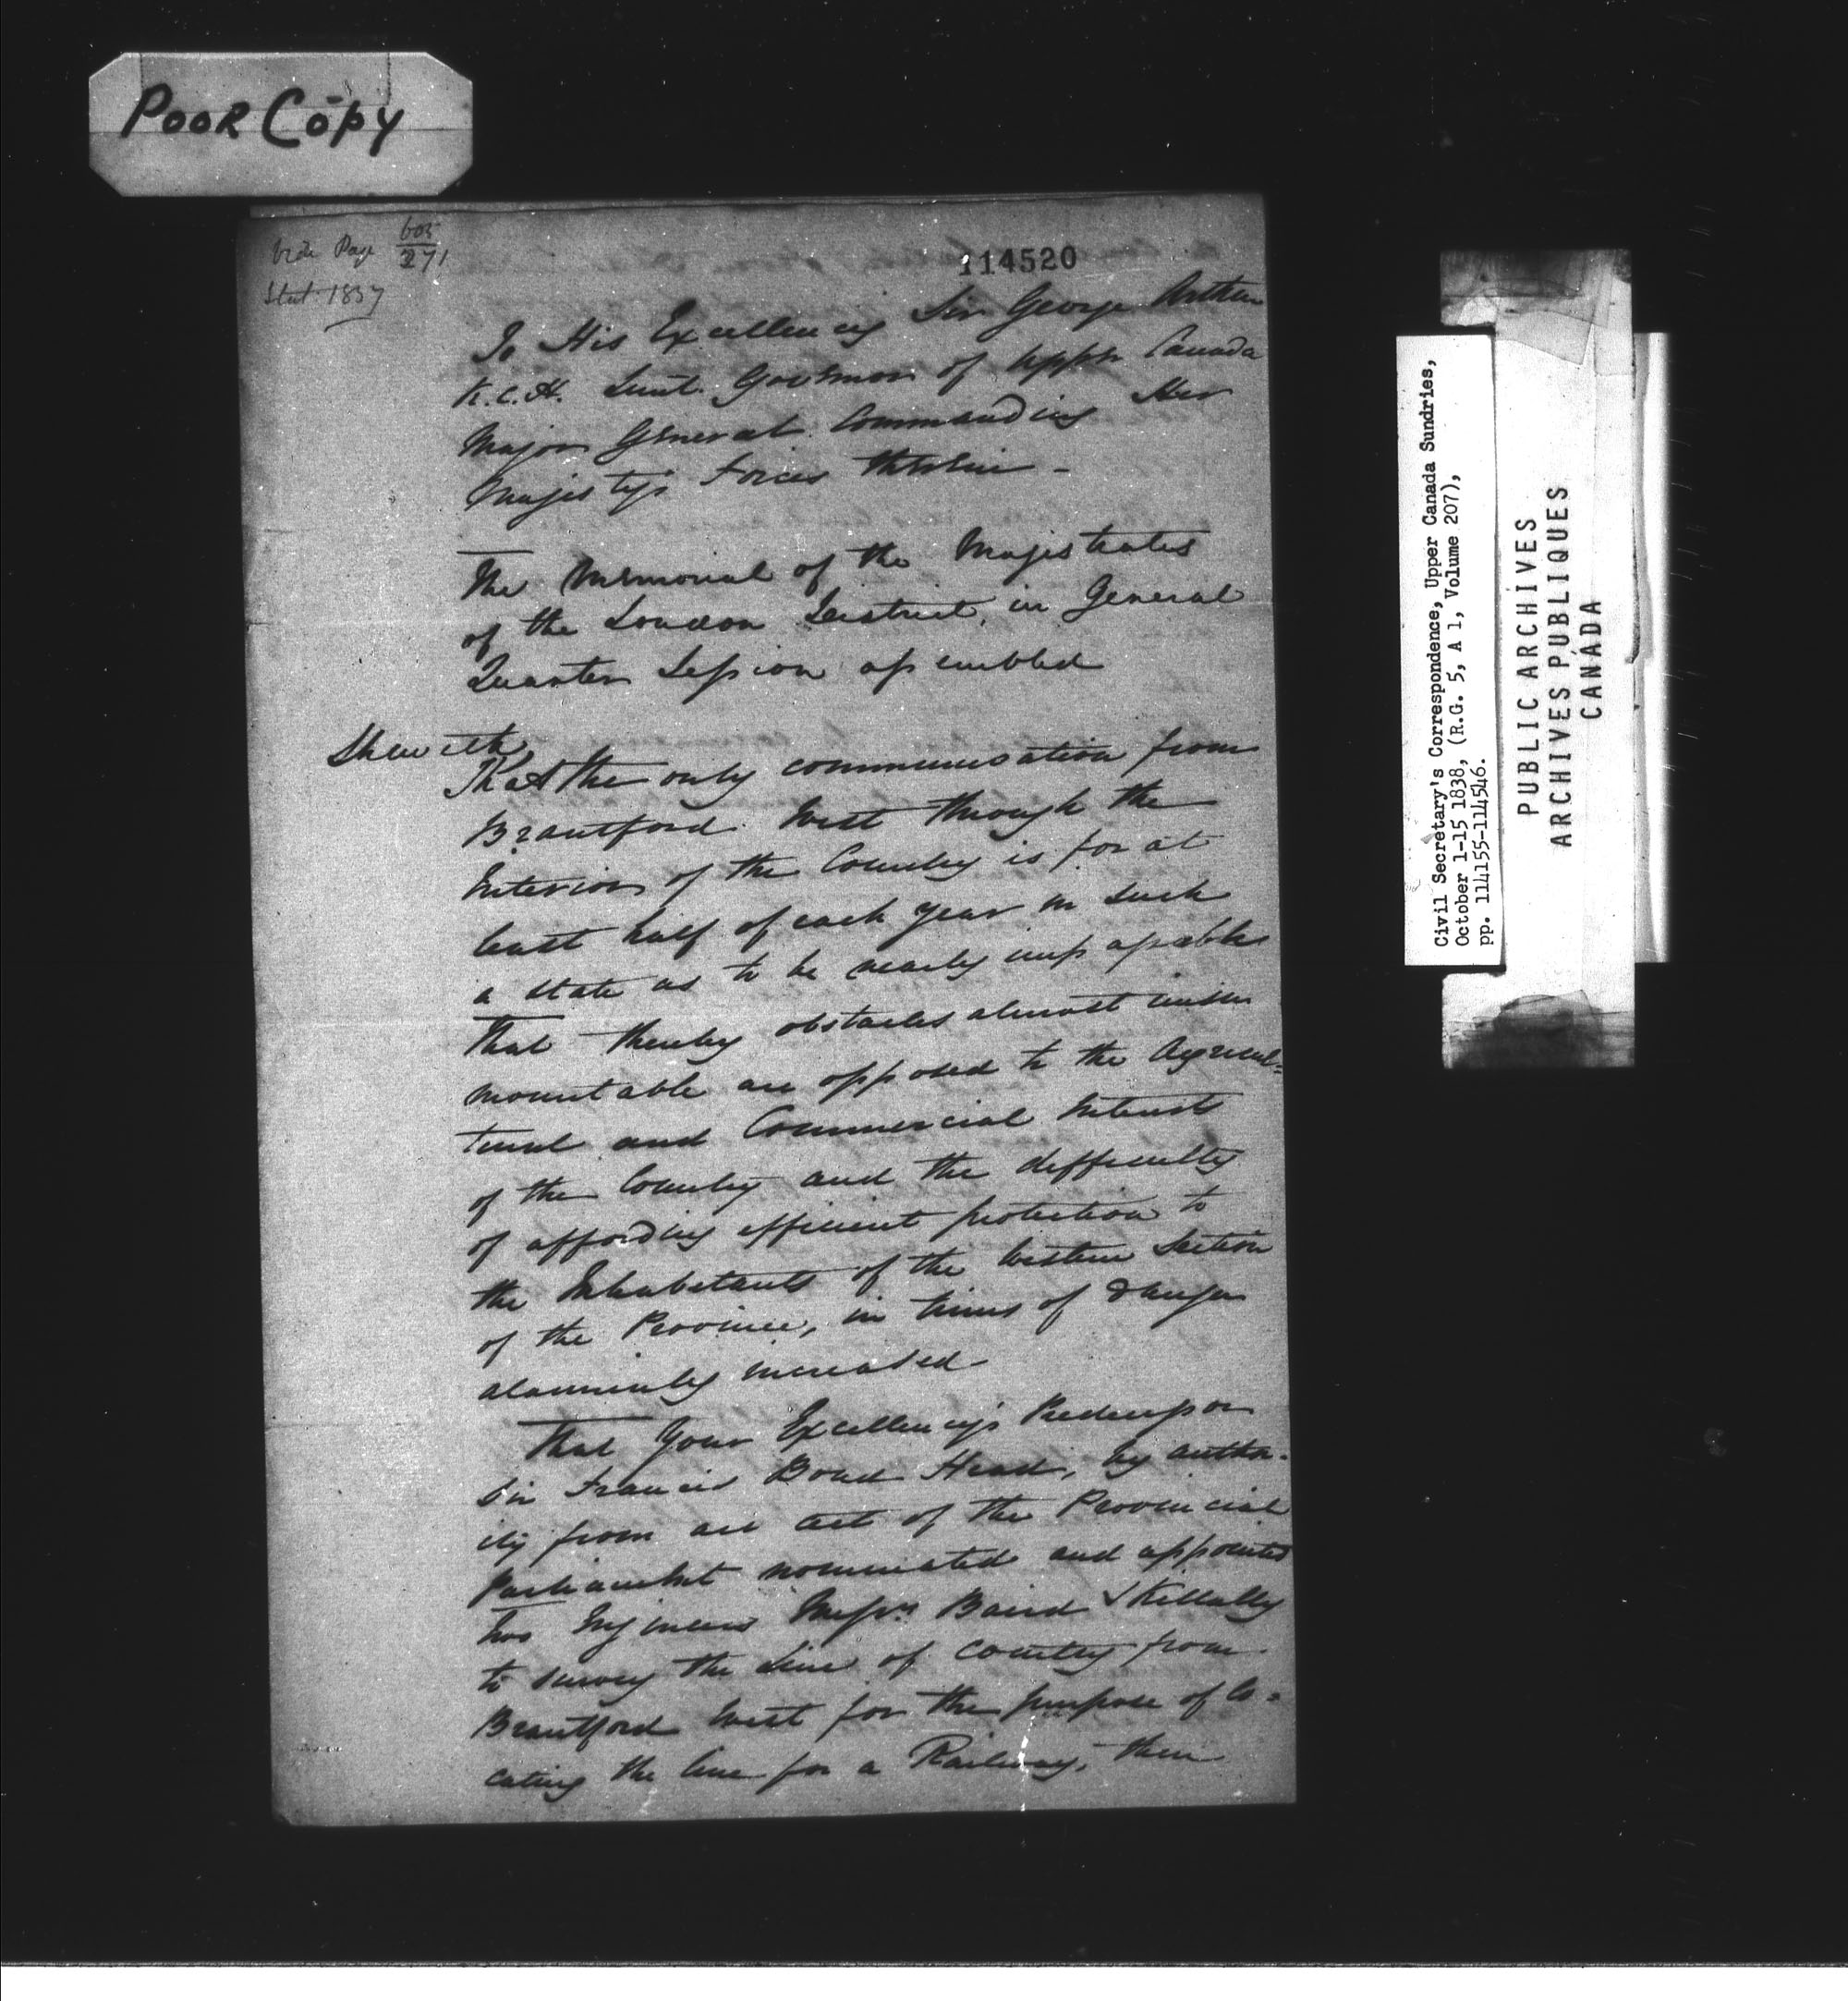 Poor Copy
Vide Page 605/271
Stat. 1837
114520
To His Excellency Sir George Arthur
K.C.H. Lieut. Governor of Upper Canada
Major General Commanding Her
Majesty's Forces therein -
The Memorial of the Magistrates
of the London District, in General
Quarter Session assembled
Sheweth,
That the only communication from
Brantford West through the
Interior of the Country is for at
least half of each year in such
a state as to be nearly impassable
That thereby obstacles almost insur
mountable are opposed to the Agricul=
tural and Commercial Interests
of the Country and the difficulty
of affording efficient protection to
the Inhabitants of the Western Section
of the Province, in times of danger
alarmingly increased
That Your Excellency's Predecessor
Sir Francis Bond Head, by author-
ity from an act of the Provincial
Parliament nominated and appointed
two Engineers Messrs Baird & Killally
to survey the Line of country from
Brantford West for the purpose of lo=
cating the line for a Railway, then
Civil Secretary's Correspondence, Upper Canada Sundries,
October 1-15 1838, (R.G. 5, A 1, Volume 207),
pp. 114155-114546.
PUBLIC ARCHIVES
ARCHIVES PUBLIQUES
CANADA